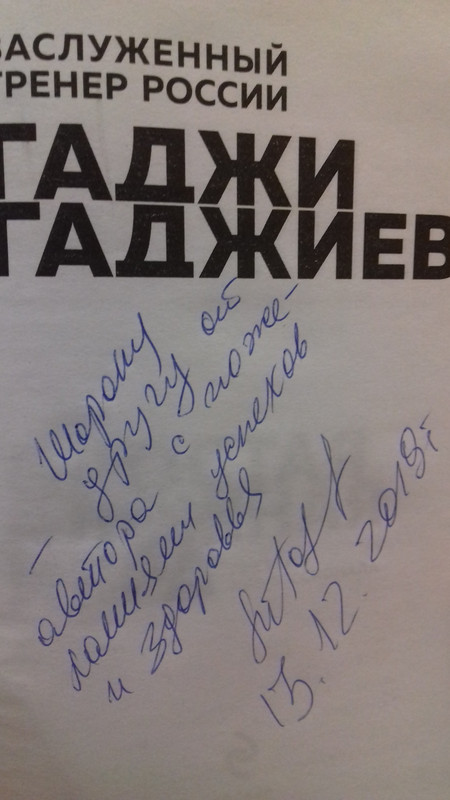 ЗАСЛУЖЕННЫЙ
ТРЕНЕР РОССИИ
ГАДЖИ
ГАДЖИЕВ
другу от
автора с поже-
ланием успехов
и здоровья
13. 12. 2019г